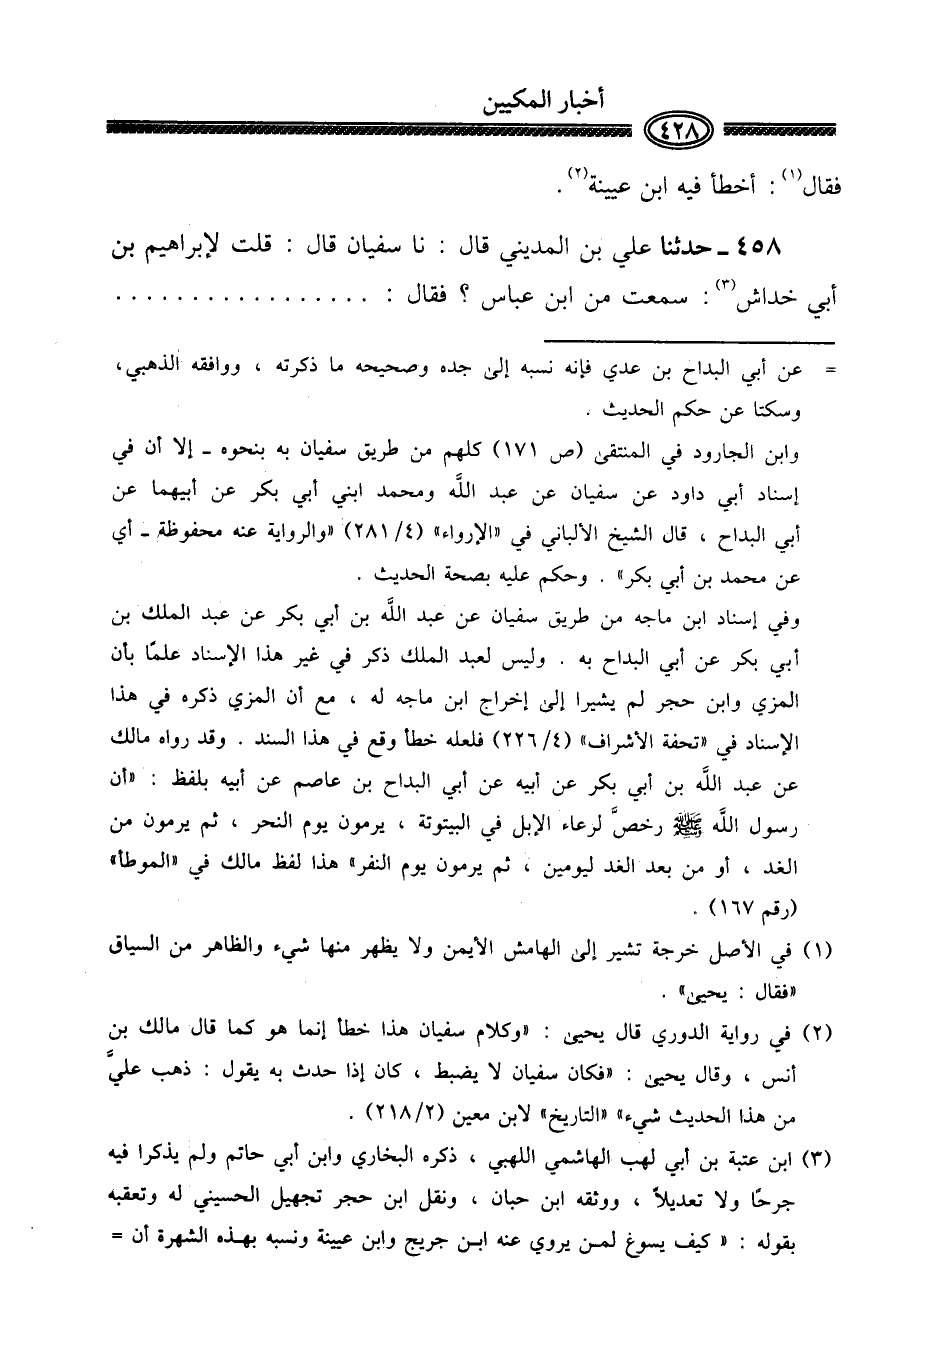 أخبار المكيين
٤٢٨
فقال(١) : أخطأ فيه ابن عيينة(٢) .
٤٥٨ ـ حدثنا علي بن المديني قال : نا سفيان قال : قلت لإبراهيم بن
أبي خداش(٣) : سمعت من ابن عباس ؟ فقال : . . . . . . . . . . . . . . . . .
= عن أبي البداح بن عدي فإنه نسبه إلى جده وصحيحه ما ذكرته ، ووافقه الذهبي،
وسكتا عن حكم الحديث .
وابن الجارود في المنتقى (ص ١٧١) كلهم من طريق سفيان به بنحوه ـ إلا أن في
إسناد أبي داود عن سفيان عن عبد اللَّه ومحمد ابني أبي بكر عن أبيهما عن
أبي البداح ، قال الشيخ الألباني في «الإرواء» (٢٨١/٤) «والرواية عنه محفوظة ـ أي
عن محمد بن أبي بكر» . وحكم عليه بصحة الحديث .
وفي إسناد ابن ماجه من طريق سفيان عن عبد اللَّه بن أبي بكر عن عبد الملك بن
أبي بكر عن أبي البداح به . وليس لعبد الملك ذكر في غير هذا الإسناد علمًا بأن
المزي وابن حجر لم يشيرا إلى إخراج ابن ماجه له ، مع أن المزي ذكره في هذا
الإسناد في «تحفة الأشراف» (٢٢٦/٤) فلعله خطأ وقع في هذا السند . وقد رواه مالك
عن عبد اللَّه بن أبي بكر عن أبيه عن أبي البداح بن عاصم عن أبيه بلفظ : «أن
رسول اللَّه ﷺ رخصَّ لرعاء الإبل في البيتوتة ، يرمون يوم النحر ، ثم يرمون من
الغد ، أو من بعد الغد ليومين ، ثم يرمون يوم النفر» هذا لفظ مالك في «الموطأ»
(رقم ١٦٧) .
(١) في الأصل خرجة تشير إلى الهامش الأيمن ولا يظهر منها شيء والظاهر من السياق
«فقال : يحيى» .
(٢) في رواية الدوري قال يحيى : «وكلام سفيان هذا خطأ إنما هو كما قال مالك بن
أنس ، وقال يحيى : «فكان سفيان لا يضبط ، كان إذا حدث به يقول : ذهب عليَّ
من هذا الحديث شيء» «التاريخ» لابن معين (٢١٨/٢) .
(٣) ابن عتبة بن أبي لهب الهاشمي اللهبي ، ذكره البخاري وابن أبي حاتم ولم يذكرا فيه
جرحًا ولا تعديلاً ، ووثقه ابن حبان ، ونقل ابن حجر تجهيل الحسيني له وتعقبه
بقوله : « كيف يسوغ لمن يروي عنه ابن جريج وابن عيينة ونسبه بهذه الشهرة أن =